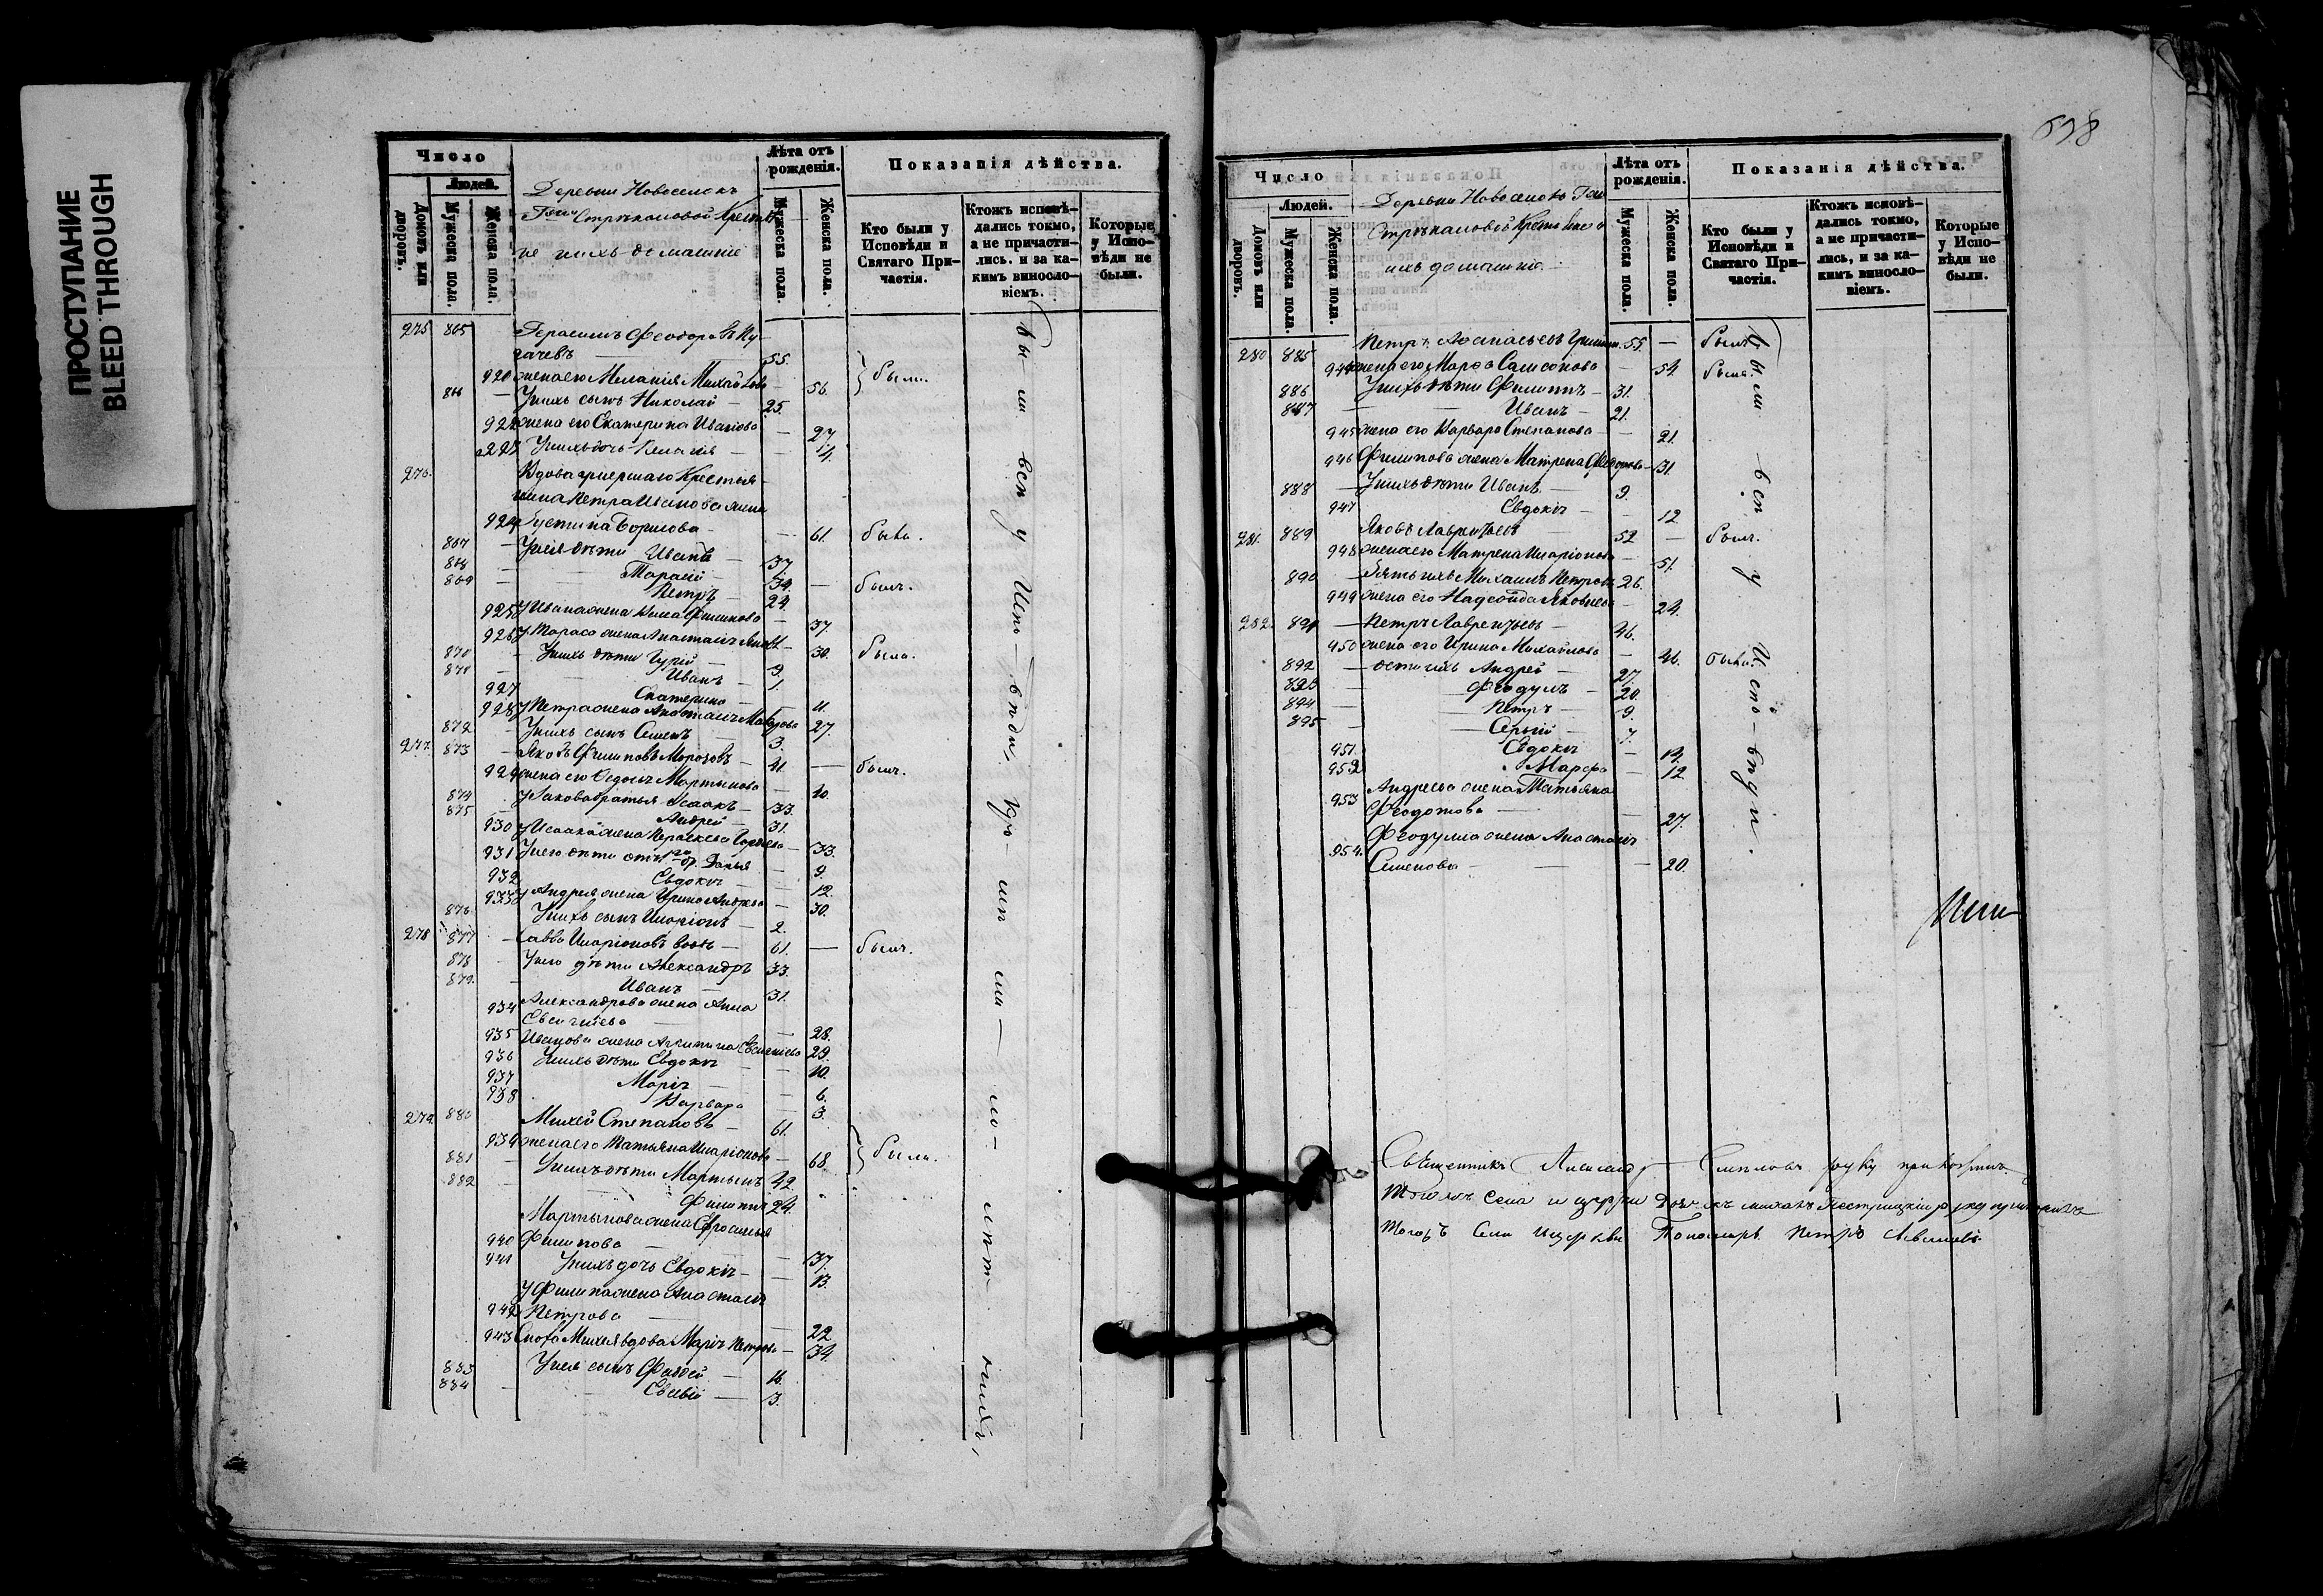 ПРОСТУПАНИЕ
BLEED THROUGH
Число
Людей.
Домовъ или дворовъ.
Мужеска пола.
Женска пола.
Деревни Новоселокъ
Гжи Стрѣкаловой Крестья
не и ихъ домашніе
Лѣта отъ рожденія.
Мужеска пола.
Женска пола.
Показанія дѣйства.
Кто были у Исповѣди и Святаго Причастія.
Ктожъ исповѣдались токмо, а не причастились. и за какимъ винословіемъ.
Которые у Исповѣди не были.
275 865 Герасимъ Феодоровъ Пу
гачевъ — 55.
920 жена его Меланія Михайлова — 56. были.
866 — У нихъ сынъ Николай — 25.
922 жена его Екатерина Иванова — 27
У нихъ дочь
276. Вдова умершаго Крестья
нина Петра Иванова жена
924 Устина Борисова — 61. была.
867 — У нея дѣти Иванъ — 37.
868 — Тарасій — 34. —
869 — Петръ — 24. былъ.
925 У Ивана жена Анна Филипова — 37.
926 У Тараса жена Анастасія — 30. была.
870 — У нихъ дѣти Гурій — 9.
871 — Иванъ — 1.
927 Екатерина — 11.
928 У Петра жена Анастасія — 27.
872 — У нихъ сынъ Семенъ — 3.
277. 873 — Яковъ Филиповъ Морозовъ — 41. — былъ.
929 жена его Ѳедосія Мартынова — 40.
874 — У Якова братья Исаакъ — 33.
875 — Андрей — 31.
930 У Исаака жена Параскева — 33.
931 У него дѣти отъ 1го бр. Дарья — 9.
932 Евдокія — 12.
933 У Андрея жена Ирина — 30.
876. У нихъ сынъ Иларіонъ — 2.
278 877 — Савва Иларіоновъ вдовъ — 61. — былъ.
878 — У него дѣти Александръ 33.
879. — Иванъ — 31.
934 Александрова жена Анна
Евсигнѣева — 28.
935 Иванова жена — 29.
936 У нихъ дѣти Евдокія — 10.
937 Марія — 6.
938 Варвара — 3.
279. 880 Михей Степановъ — 61.
939 жена его Татьяна Иларіонова — 68. были.
881 — У нихъ дѣти Мартынъ 42.
882 — Филиппъ 24.
Мартынова жена Ефросинья
940 Филипова — 37.
941 У нихъ дочь Евдокія — 13.
У Филипа жена Анастасія
942 Петрова — 22.
943 Сноха Михея вдова Марія Петрова — 34.
883 У нея сынъ Фаддей — 16.
884 — Евсевій — 3.
Бы-ли всѣ у Испо-вѣди,
638
Число
Людей.
Домовъ или дворовъ.
Мужеска пола.
Женска пола.
Деревни Новоселокъ Гжи
Стрѣкаловой Крестьяне и
ихъ домашніе.
Лѣта отъ рожденія.
Мужеска пола.
Женска пола.
Показанія дѣйства.
Кто были у Исповѣди и Святаго Причастія.
Ктожъ исповѣдались токмо, а не причастились, и за какимъ винословіемъ.
Которые у Исповѣди не были.
280 885 Петръ Аѳанасьевъ 55. — былъ.
944 жена его Марѳа Самсонова — 54. была.
886 У нихъ дѣти Филиппъ — 31.
887 — Иванъ — 21.
945 жена его Варвара Степанова — 21.
946 Филипова жена Матрена — 31.
888 — У нихъ дѣти Иванъ — 9.
947 Евдокія — 12
281. 889 Яковъ Лаврентьевъ — 52 — былъ.
948 жена его Матрена Иларіонова — 51.
890 — Зять ихъ Михаилъ Петровъ 26.
949 жена его Яковлева — 24.
282. 891 — Петръ Лаврентьевъ — 46.
950 жена его Ирина Михайлова — 46. была.
892 — дѣти ихъ Андрей — 27.
893 — Феодулъ — 20.
894 — Петръ — 9.
895 — Сергій — 7.
951. Евдокія — 14.
952 Марѳа — 12
Андреева жена Татьяна
953 Феодотова — 27.
Феодулма жена Анастасія
954. Семенова — 20.
Были всѣ у Испо-вѣди.
Священникъ руку приложилъ
Тогожъ села и церкви руку приложилъ
Тогожъ села и церкви Пономарь Петръ